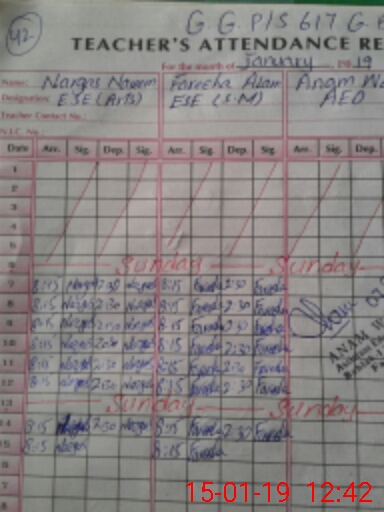 42
G.G.P/S 617 G.B
TEACHER'S ATTENDANCE RE
For the month of January 2019
Name: Nargas Naseem Fareeha Alam Anam
Designation: ESE (Arts) ESE (S.M) AEO
Teacher Contact No.:
N.I.C. No.:
Date Arr. Sig. Dep. Sig. Arr. Sig. Dep. Sig. Arr. Sig.
1
2
3
4
5
6 Sunday Sunday
7 8:15 Nargas 2:30 Nargas 8:15 Fareeha 2:30 Fareeha
8 8:15 Nargas 2:30 Nargas 8:15 Fareeha 2:30 Fareeha
9 8:15 Nargas 2:30 Nargas 8:15 Fareeha 2:30 Fareeha
10 8:15 Nargas 2:30 Nargas 8:15 Fareeha 2:30 Fareeha
11 8:15 Nargas 2:30 Nargas 8:15 Fareeha 2:30 Fareeha
12 8:15 Nargas 2:30 Nargas 8:15 Fareeha 2:30 Fareeha
ANAM
13 Sunday Sunday
14 8:15 Nargas 2:30 Nargas 8:15 Fareeha 2:30 Fareeha
15 8:15 Nargas 8:15 Fareeha
6
7
8
15-01-19 12:42